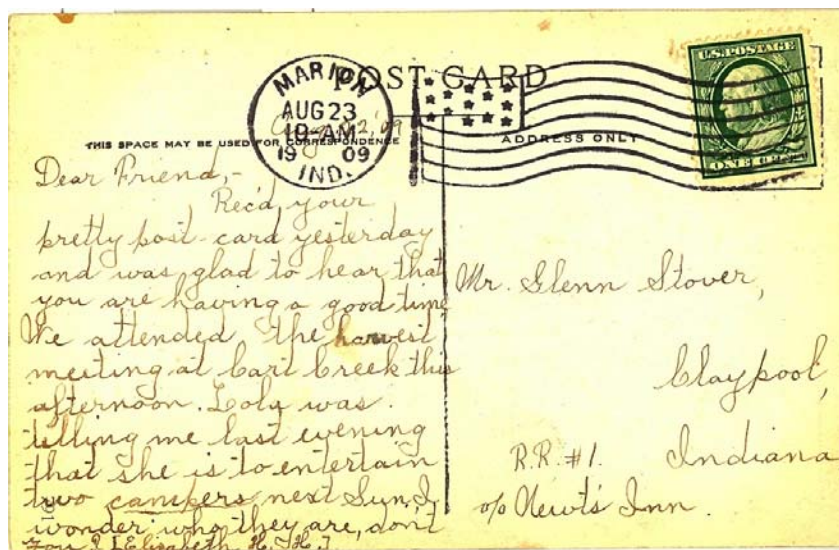 POST CARD
MARION
AUG 23
10-AM
1909
IND.
U.S. POSTAGE
ONE CENT
Aug. 22, '09
THIS SPACE MAY BE USED FOR CORRESPONDENCE
ADDRESS ONLY
Dear Friend,-
Rec'd your
pretty post-card yesterday
and was glad to hear that
you are having a good time
We attended the harvest
meeting at Cart Creek this
afternoon. Lola was
telling me last evening
that she is to entertain
two campers next Sun. I
wonder who they are, don't
you? [Elizabeth H.
Mr. Glenn Stover,
Claypool,
Indiana
R.R. #1.
c/o Newt's Inn.